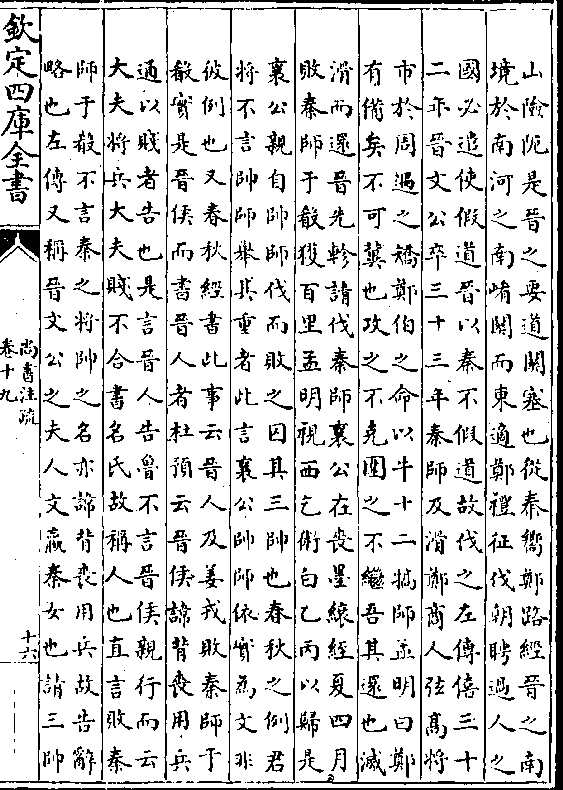 山險阨是晉之要道關塞也從秦嚮鄭路經晉之南
境於南河之南崤關而東適鄭禮征伐朝聘過人之
國必遣使假道晉以秦不假道故伐之左傳僖三十
二年晉文公卒三十三年秦師及滑鄭商人弦高將
市於周遇之矯鄭伯之命以牛十二犒師孟明曰鄭
有備矣不可冀也攻之不克圍之不繼吾其還也滅
滑而還晉先軫請伐秦師襄公在喪墨縗絰夏四月
敗秦師于殽獲百里孟明視西乞術白乙丙以歸是
襄公親自帥師伐而敗之囚其三帥也春秋之例君
將不言帥師舉其重者此言襄公帥師依實為文非
彼例也又春秋經書此事云晉人及姜戎敗秦師于
殽實是晉侯而書晉人者杜預云晉侯諱背喪用兵
通以賤者告也是言晉人告魯不言晉侯親行而云
大夫將兵大夫賤不合書名氏故稱人也直言敗秦
師于殽不言秦之將帥之名亦諱背喪用兵故告辭
略也左傳又稱晉文公之夫人文嬴秦女也請三帥
欽定四庫全書
尚書注疏
卷十九
十六